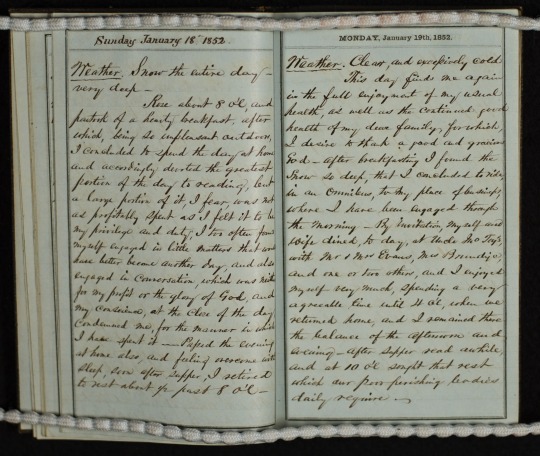 Sunday January 18th 1852.
Weather. Snow the entire day –
very deep –
Rose about 8 OC, and
partook of a hearty breakfast, after
which, being so unpleasant outdoors,
I concluded to spend the day at home
and accordingly devoted the greatest
portion of the day to reading, but
a large portion of it, I fear was not
as profitably spent as I felt it to be
my privilege and duty, I too often found
myself engaged in little matters that would
have better become another day, and also
engaged in Conversation which was neither
for my profit or the glory of God, and
my Conscience, at the close of the day
Condemned me, for the manner in which
I have spent it – Passed the evening
at home also, and feeling overcome with
sleep, soon after supper, I retired
to rest about ½ past 8 OC –
MONDAY, January 19th, 1852.
Weather. Clear, and excessively cold
This day finds me again
in the full enjoyment of my usual
health, as well as the continued good
health of my dear family, for which,
I desire to thank a good and gracious
God – after breakfasting I found the
Snow so deep, that I concluded to ride
in an Omnibus, to my place of business,
where I have been engaged through
the morning – By Invitation, myself and
wife dined, to day, at Uncle
with Mr & Mrs Evans, Mrs
and one or two others, and I enjoyed
myself very much, spending a very
agreeable time until 4 OC, when we
returned home, and I remained there
the balance of the afternoon and
evening – after supper read awhile,
and at 10 OC sought that rest
which our poor perishing bodies
daily require –